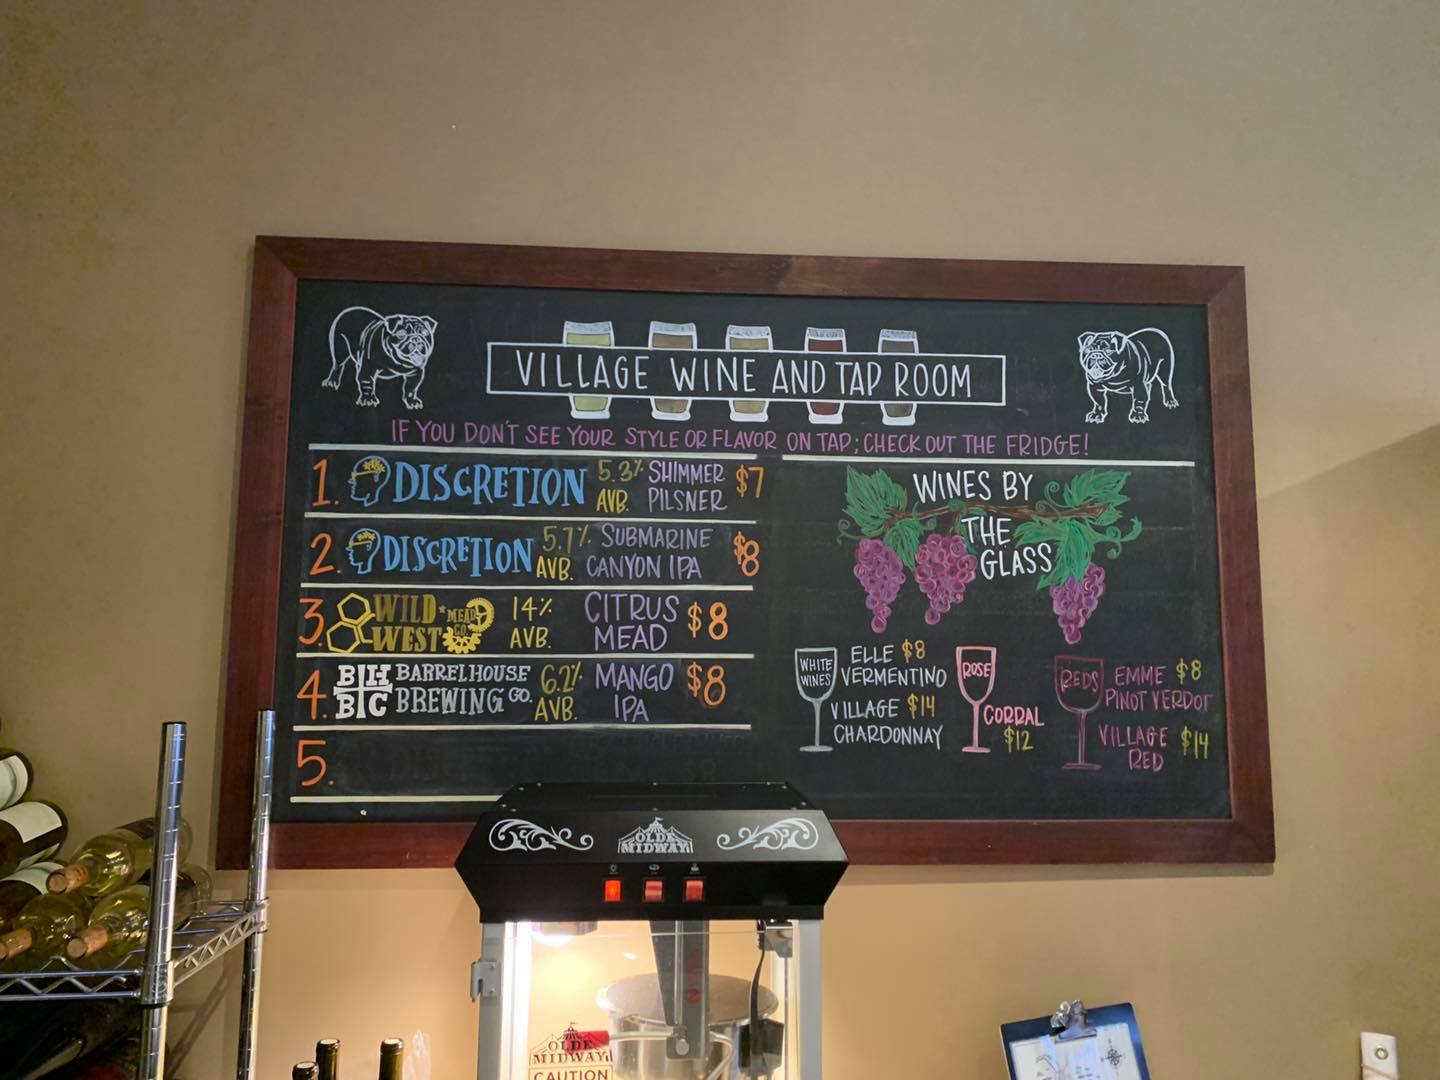 VILLAGE WINE AND TAP ROOM
IF YOU DON'T SEE YOUR STYLE OR FLAVOR ON TAP; CHECK OUT THE FRIDGE!
1. DISCRETION 5.3% AVB. SHIMMER PILSNER $7
2. DISCRETION 5.7% AVB. SUBMARINE CANYON IPA $8
3. WILD WEST MEAD CO. 14% AVB. CITRUS MEAD $8
4. BHBC BARRELHOUSE BREWING CO. 6.2% AVB. MANGO IPA $8
5.
WINES BY
THE
GLASS
WHITE
WINES
ELLE $8
VERMENTINO
VILLAGE $14
CHARDONNAY
ROSE
CORRAL
$12
REDS
EMME $8
PINOT VERDOT
VILLAGE $14
RED
OLDE
MIDWAY
OLDE
MIDWAY
CAUTION